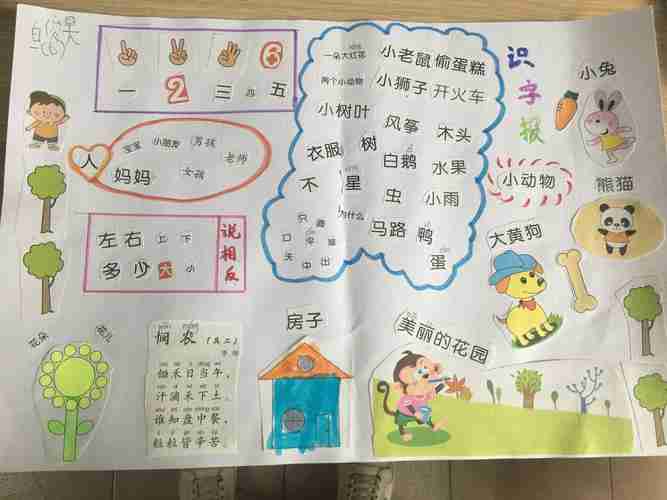 6
一 2 三 四 五
人
宝宝 小朋友 男孩
妈妈 女孩 老师
左右 上 下
多少 大 小
说相反
一朵大红花 小老鼠 偷蛋糕
两个小动物 小狮子 开火车
小树叶 风筝 木头
衣服 树 白鹅 水果
不 星 虫 小雨
为什么 马路 鸭
蛋
识字报
小兔
小动物
熊猫
大黄狗
花朵 花儿
悯农（其二）
李绅
锄禾日当午，
汗滴禾下土。
谁知盘中餐，
粒粒皆辛苦。
房子
美丽的花园